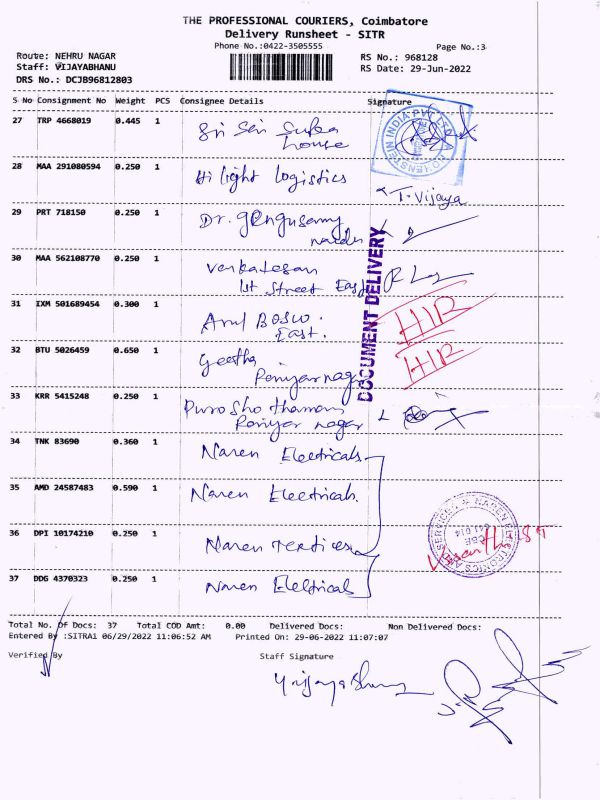 THE PROFESSIONAL COURIERS, Coimbatore
Delivery Runsheet - SITR
Phone No.:0422-3505555
Page No.:3
Route: NEHRU NAGAR
RS No.: 968128
Staff: VIJAYABHANU
RS Date: 29-Jun-2022
DRS No.: DCJB96812803
S No Consignment No Weight PCS Consignee Details Signature
27 TRP 4668019 0.445 1 Sri Sai Supra
house
28 MAA 291080594 0.250 1 Hi light logistics
T. Vijaya
29 PRT 718150 0.250 1 Dr.
30 MAA 562108770 0.250 1 Venkatesan
1st Street East
31 IXM 501689454 0.300 1 Arul Bosco.
East.
HIR
32 BTU 5026459 0.650 1 Geetha
Periyar nagar
HIR
33 KRR 5415248 0.250 1 Purosho thaman
Periyar nagar
34 TNK 83690 0.360 1 Naren Electricals
35 AMD 24587483 0.590 1 Naren Electricals.
36 DPI 10174210 0.250 1 Naren
37 DDG 4370323 0.250 1 Naren Electrical
DOCUMENT DELIVERY
HOHENSTEIN INDIA PVT LTD
Total No. Of Docs: 37 Total COD Amt: 0.00 Delivered Docs: Non Delivered Docs:
Entered By :SITRA1 06/29/2022 11:06:52 AM Printed On: 29-06-2022 11:07:07
Verified By
Staff Signature